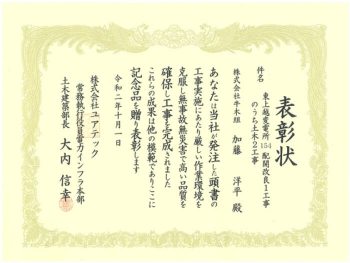 表彰状
件名
東上越変電所154配開改良1工事
のうち土木2工事
株式会社牛木組
加藤 洋平 殿
あなたは当社が発注した頭書の
工事実施にあたり厳しい作業環境を
克服し無事故無災害で高い品質を
確保し工事を完成されました
これらの成果は他の模範でありここに
記念品を贈り表彰します
令和二年十月一日
株式会社ユアテック
常務執行役員電力インフラ本部
土木建築部長 大内 信幸